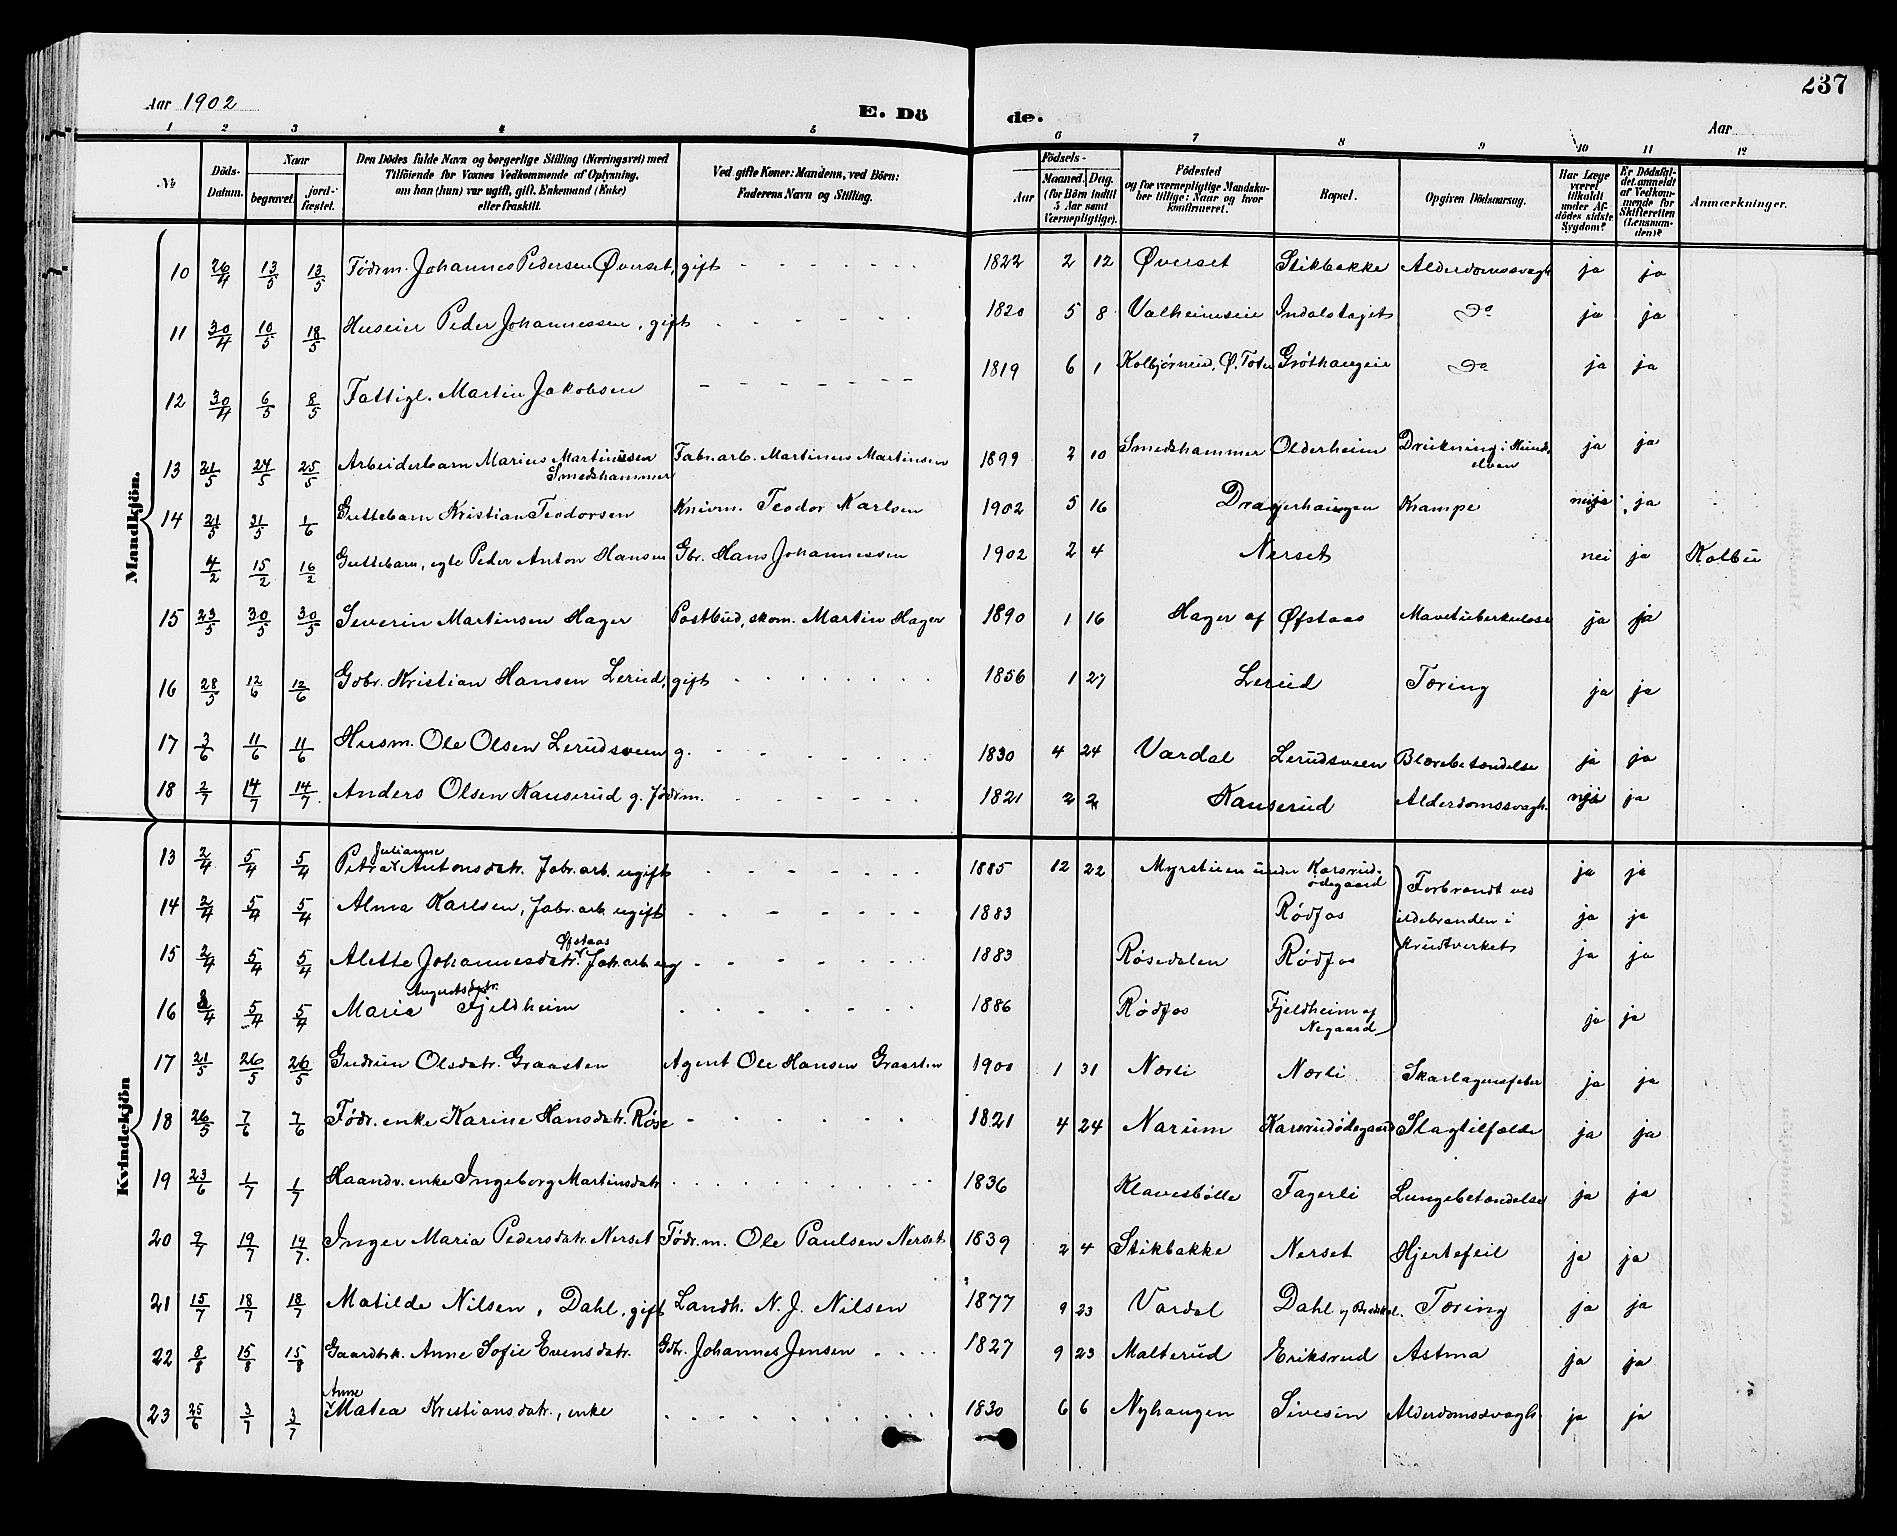 237
Aar 1902
E. Dö
de.
Aar
1 2 3 4 5 6 7 8 9 10 11 12
№
Döds-Datum.
Naar
begravet.
jord-fæstet.
Den Dödes fulde Navn og borgerlige Stilling (Næringsvei) med
Tilföiende for Voxnes Vedkommende af Oplysning,
om han (hun) var ugift, gift, Enkemand (Enke)
eller fraskilt.
Ved gifte Koner: Mandens, ved Börn:
Faderens Navn og Stilling.
Födsels-
Aar
Maaned. Dag.
(for Börn indtil
5 Aar samt
Værnepligtige).
Födested
og for værnepligtige Mandska-
ber tillige: Naar og hvor
konstrueret.
Bopæl.
Opgiven Dödsaarsag.
Har Læge
været
tilkaldt
under Af-
dödes sidste
Sygdom?
Er Dödsfal-
det anmeldt
af Vedkom-
mende for
Skifteretten
(Lensman-
den)?
Anmærkninger.
Mandkjön.
10 26/4 13/5 13/5 Føderm. Johannes Pedersen Øverset, gift 1822 2 12 Øverset Stikbakke Alderdomssvagh. ja ja
11 30/4 10/5 18/5 Huseier Peder Johannessen, gift 1820 5 8 Valheimseie Indalstaget do ja ja
12 30/4 6/5 8/5 Fattigl. Martin Jakobsen 1819 6 1 Kolbjørnrud, Ø. Toten Grøthaugeie do ja ja
13 21/5 24/5 25/5 Arbeiderbarn Marius Martinusen Smedshammer Fabr.arb. Martinus Martinsen 1899 2 10 Smedshammer Olderheim Drukning i Hunds-elven ja ja
14 21/5 31/5 1/6 Guttebarn Kristian Teodorsen Knivm. Teodor Karlsen 1902 5 16 Dragerhaugen Krampe ja
4/2 15/2 16/2 Guttebarn, egte Peder Anton Hansen Gbr. Hans Johannessen 1902 2 4 Nerset nei ja Kolbu
15 23/5 30/5 30/5 Severin Martinsen Hager Postbud, skom. Martin Hager 1890 1 16 Hager af Øfstaas Mavetuberkulose ja ja
16 28/5 12/6 12/6 Gdbr. Kristian Hansen Lerud, gift 1856 1 27 Lerud Tæring ja ja
17 3/6 11/6 11/6 Husm. Ole Olsen Lerudsveen g. 1830 4 24 Vardal Lerudsveen Blærebetændelse ja ja
18 2/7 14/7 14/7. Anders Olsen Kauserud g. føderm. 1821 2 2 Kauserud Alderdomssvagh. ja
Kvindekjön
13 2/4 5/4 5/4 Petra Julianne Antonsdatr. fabr.arb. ugift 1885 12 22 Myrstuen under Karsrud-ødegaard Forbrændt ved ildebranden i Krudtverket ja ja
14 2/4 5/4 5/4 Alma Karlsen, fabr.arb. ugift 1883 Rødfos ja ja
15 2/4 5/4 5/4 Alette Johannesdatr. Øfstaas fabr.arb ug 1883 Røsedalen Rødfos ja ja
16 /4 5/4 5/4 Marie Augustsdatr. Fjeldheim 1886 Rødfos Fjeldheim af Nøgaard ja ja
17 21/5 26/5 26/5 Gudrun Olsdatr. Graasten Agent Ole Hansen Graasten 1900 1 31 Nørli Nørli Skarlagensfeber ja ja
18 26/5 7/6 7/6 Fødr. enke Karine Hansdatr. Røse 1821 4 24 Narum Karsrudødegaard Slagtilfælde ja ja
19 23/6 1/7 1/7 Haandv. enke Ingeborg Martinsdatr. 1836 Klavesbølle Fagerli Lungebetændelse ja ja
20 9/7 19/7 19/7. Inger Maria Pedersdatr. Nerset Fødr.m. Ole Paulsen Nerset 1839 2 4 Stikbakke Nerset Hjertefeil ja ja
21 15/7 18/7 18/7 Matilde Nilsen, Dahl, gift Landh. N. J. Nilsen 1877 9 23 Vardal Dahl Tæring ja ja
22 8/8 15/8 15/8 Gaardbr.k. Anne Sofie Evensdatr. Gdbr. Johannes Jensen 1827 9 23 Malterud Eriksrud Astma ja ja
23 25/6 3/7 3/7 Anne Matea Kristiansdatr., enke 1830 6 6 Nyhaugen Sivesin Alderdomssvagh. ja ja